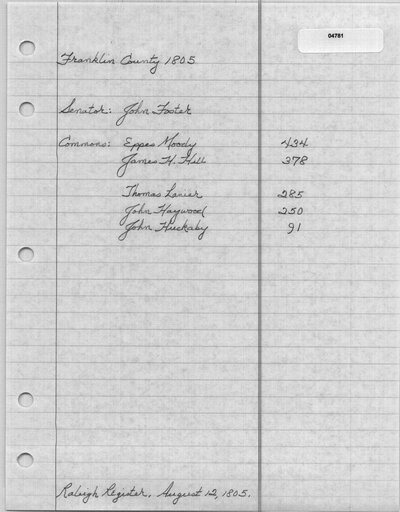 04781
Franklin County 1805
Senator: John Foster
Commons: Eppes Moody 434
James H. Hill 378
Thomas Lanier 285
John Haywood 250
John Huckaby 91
Raleigh Register, August 12, 1805.